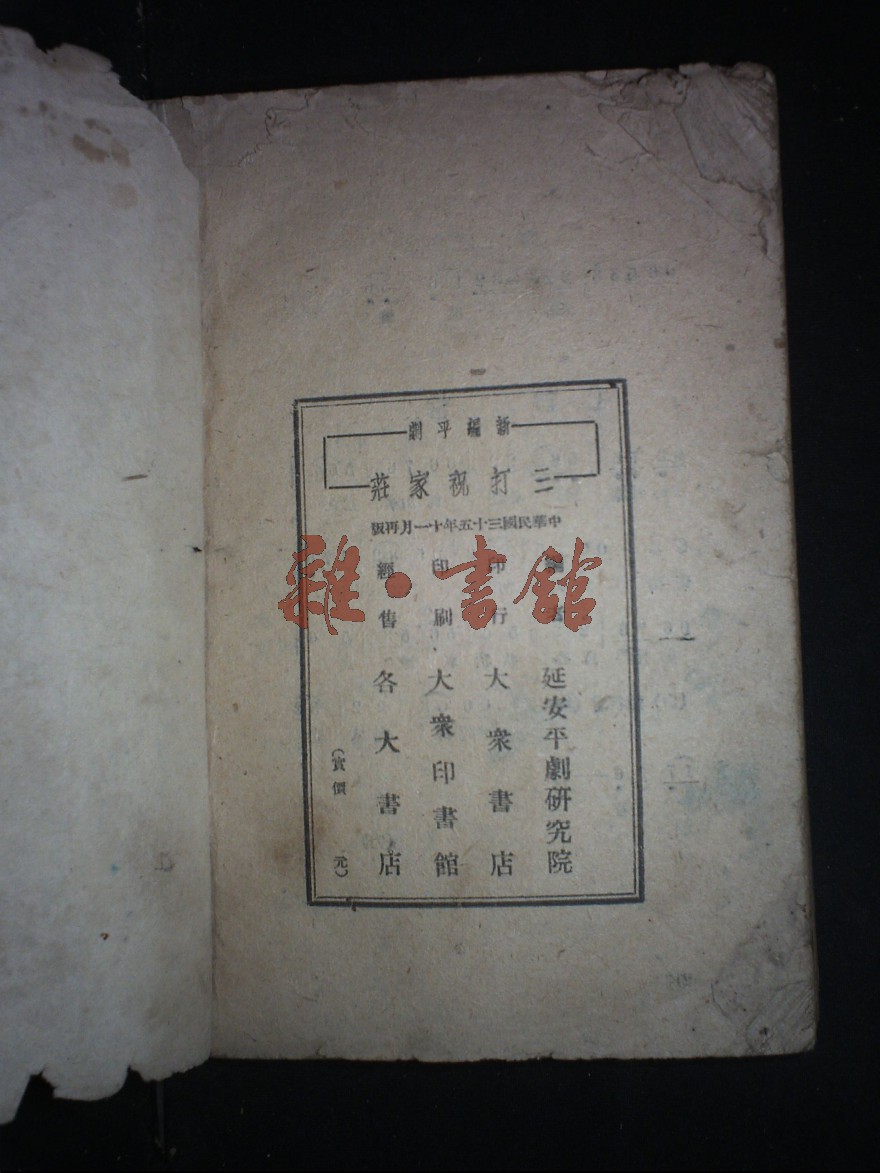 新編平劇
三打祝家莊
中華民國三十五年十一月再版
延安平劇研究院
印行 大衆書店
印刷 大衆印書館
經售 各大書店
(實價 元)
雜·書館